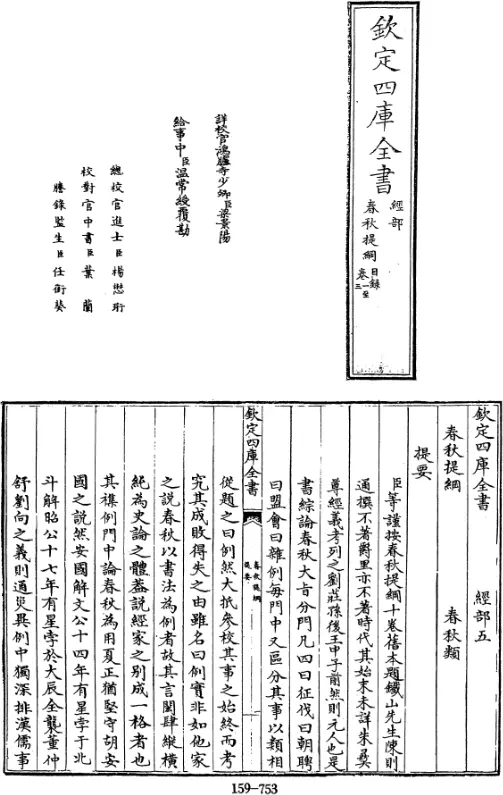 欽定四庫全書
經部
春秋提綱
目錄
卷一至三
詳校官鴻臚寺少卿臣梁景陽
給事中臣温常綬覆勘
總校官進士臣楊懋珩
校對官中書臣葉蘭
謄錄監生臣任銜葵
欽定四庫全書 經部五
春秋提綱 春秋類
提要
臣等謹按春秋提綱十卷舊本題鐵山先生陳則
通撰不著爵里亦不著時代其始末未詳朱彞
尊經義考列之劉莊孫後王申子前然則元人也是
書綜論春秋大旨分門凡四曰征伐曰朝聘
曰盟會曰雜例每門中又區分其事以類相
欽定四庫全書
春秋提綱
提要
一
從題之曰例然大抵參校其事之始終而考
究其成敗得失之由雖名曰例實非如他家
之說春秋以書法為例者故其言閎肆縱橫
純為史論之體蓋說經家之別成一格者也
其襍例門中論春秋為用夏正猶堅守胡安
國之說然安國解文公十四年有星孛于北
斗解昭公十七年有星孛於大辰全襲董仲
舒劉向之義則通災異例中獨深排漢儒事
159-753